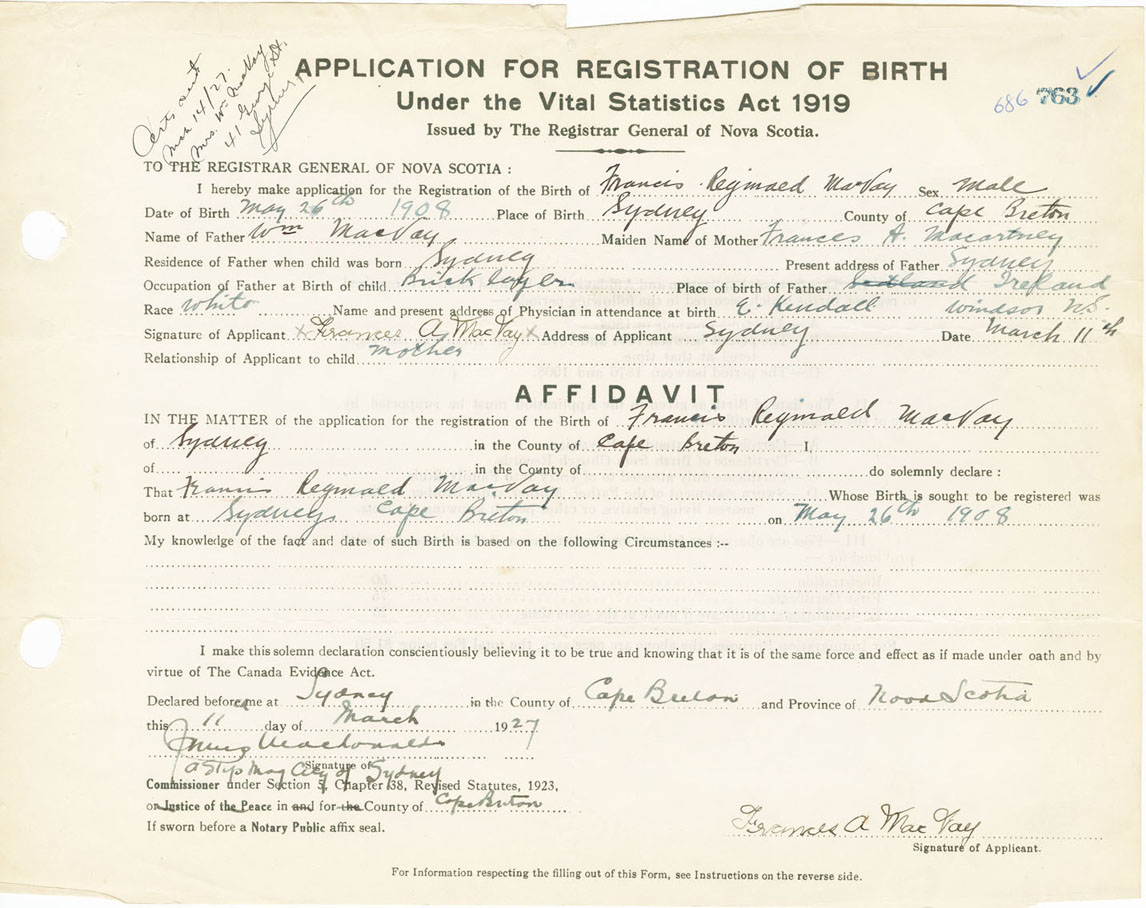 Certs sent
Mch 14/27.
Mrs. Wm MacKay
41 George St.
Sydney
APPLICATION FOR REGISTRATION OF BIRTH
Under the Vital Statistics Act 1919
686 763
Issued by The Registrar General of Nova Scotia.
TO THE REGISTRAR GENERAL OF NOVA SCOTIA :
I hereby make application for the Registration of the Birth of Francis Reginald MacVay Sex Male
Date of Birth May 26th 1908 Place of Birth Sydney County of Cape Breton
Name of Father Wm MacVay Maiden Name of Mother Frances A. Macartney
Residence of Father when child was born Sydney Present address of Father Sydney
Occupation of Father at Birth of child Brick layer Place of birth of Father Ireland
Race White Name and present address of Physician in attendance at birth E. Kendall Windsor N.S.
Signature of Applicant x Frances A. MacVay x Address of Applicant Sydney Date March 11th
Relationship of Applicant to child mother
AFFIDAVIT
IN THE MATTER of the application for the registration of the Birth of Francis Reginald MacVay
of Sydney in the County of Cape Breton I,
of in the County of do solemnly declare :
That Francis Reginald MacVay Whose Birth is sought to be registered was
born at Sydney Cape Breton on May 26th 1908
My knowledge of the fact and date of such Birth is based on the following Circumstances :--
I make this solemn declaration conscientiously believing it to be true and knowing that it is of the same force and effect as if made under oath and by
virtue of The Canada Evidence Act.
Declared before me at Sydney in the County of Cape Breton and Province of Nova Scotia
this 11 day of March 1927
Macdonald
A Stip Mag City of Sydney
Signature of
Commissioner under Section 5, Chapter 38, Revised Statutes, 1923,
or Justice of the Peace in and for the County of Cape Breton
If sworn before a Notary Public affix seal.
Frances A MacVay
Signature of Applicant.
For Information respecting the filling out of this Form, see Instructions on the reverse side.